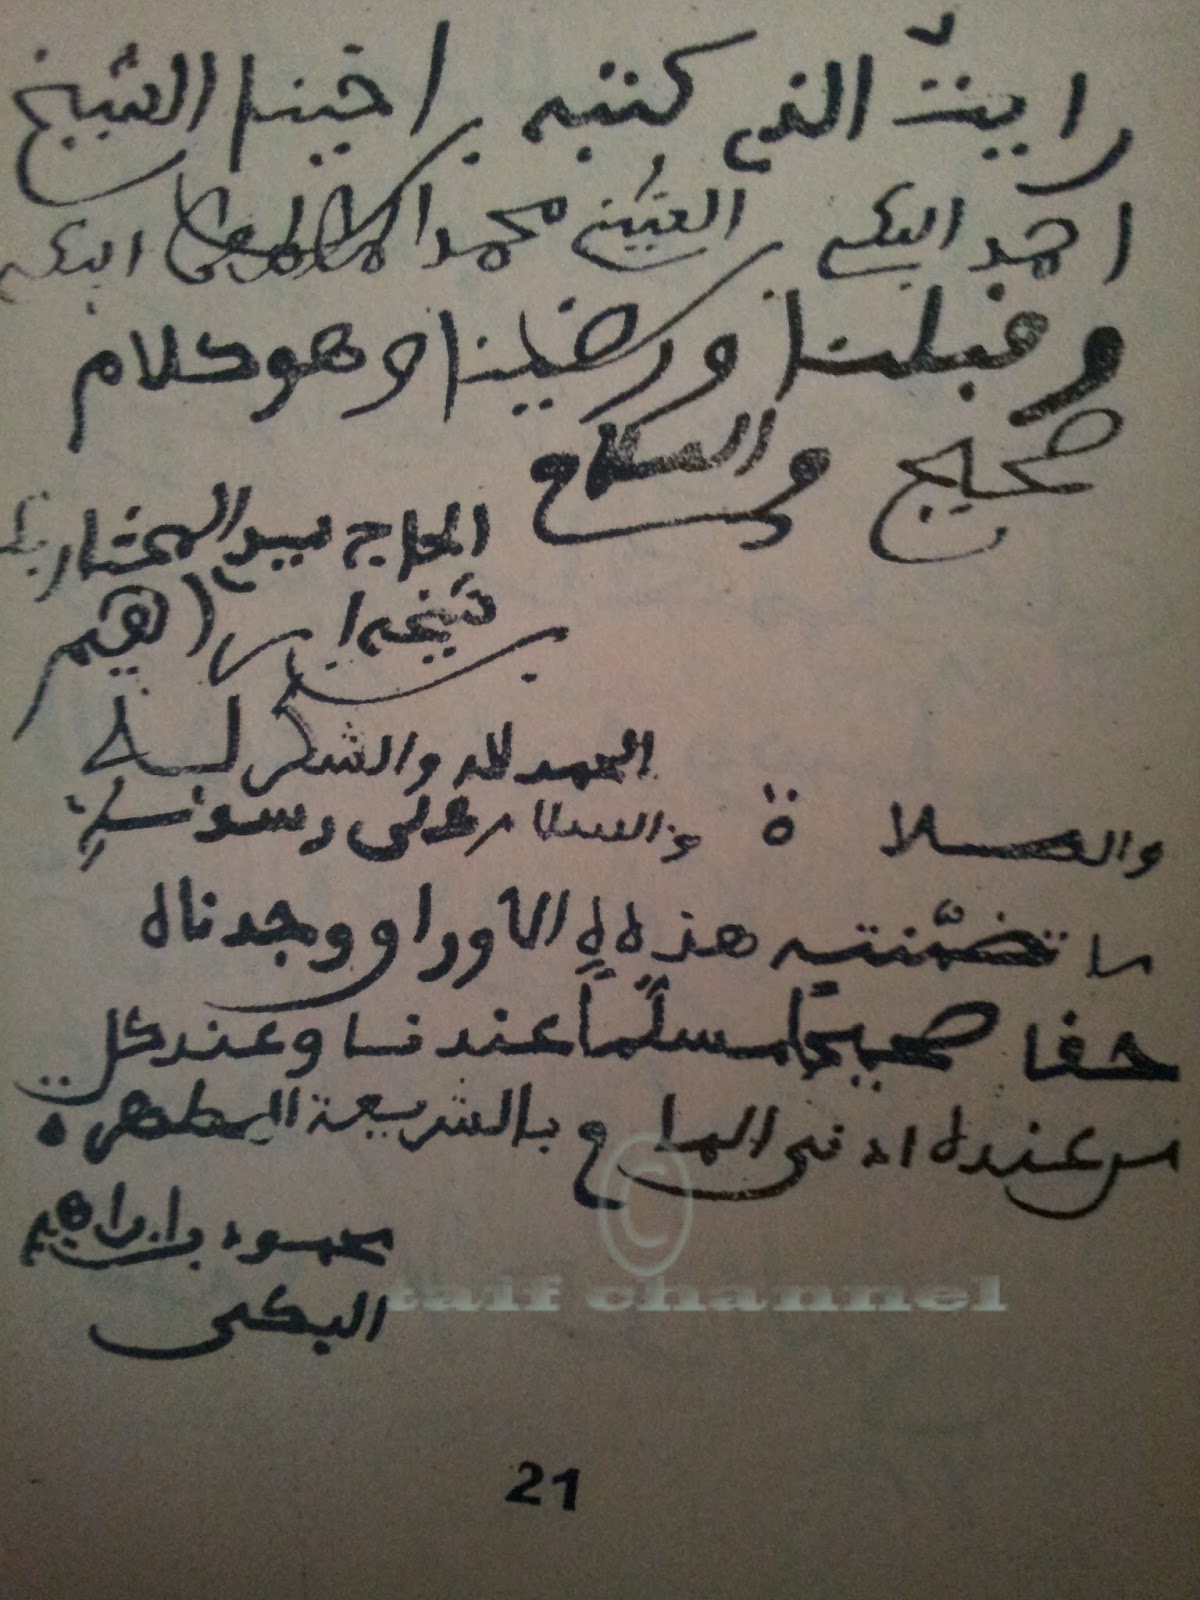 رايت الذي كتبه اخينا الشيخ
احمد البكي الشيخ محمد البكي
وقبلنا ورضينا وهو كلام
صحيح والسلام
الحاج سيد المختار
شيخه ابراهيم
الحمد لله والشكر لله
والصلاة والسلام على رسوله
ما تضمنته هذه الأوراق وجدناه
حقا صحيحًا مسلّمًا عندنا وعند كل
من عنده ادنى الماع بالشريعة المطهرة
محمود بابراهيم
البكى
©
taif channel
21